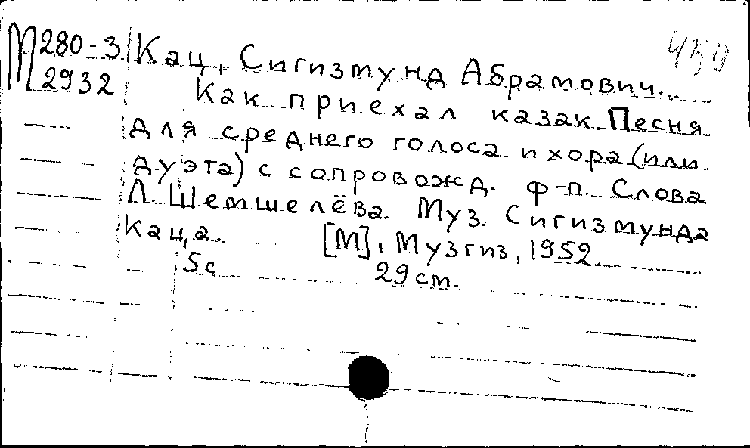 М 280-3 Кац, Сигизмунд Абрамович. 450
2932 Как приехал казак. Песня
для среднего голоса и хора (или
дуэта) с сопровожд. ф-п. Слова
Л. Шемшелёва. Муз. Сигизмунда
Каца. [М], Музгиз, 1952.
5с 29 см.